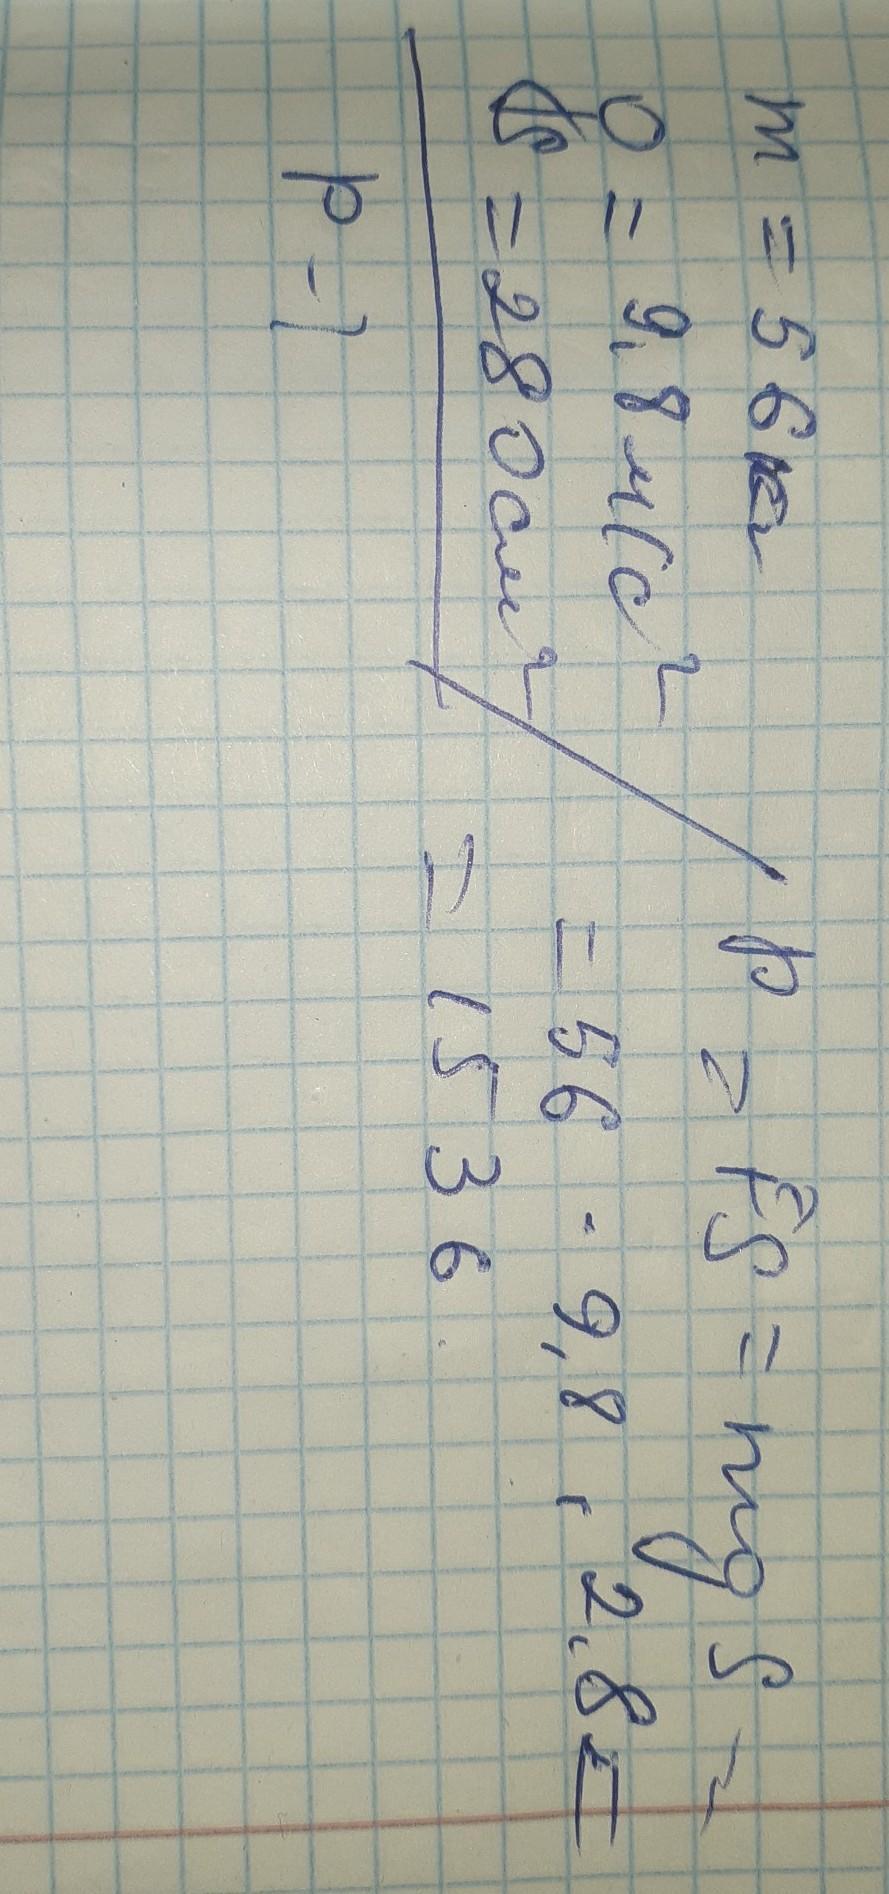 m = 56 кг
g = 9,8 м/с²
S = 280 см²
p - ?
p = FS = mgS =
= 56 · 9,8 · 2,8 =
= 1536